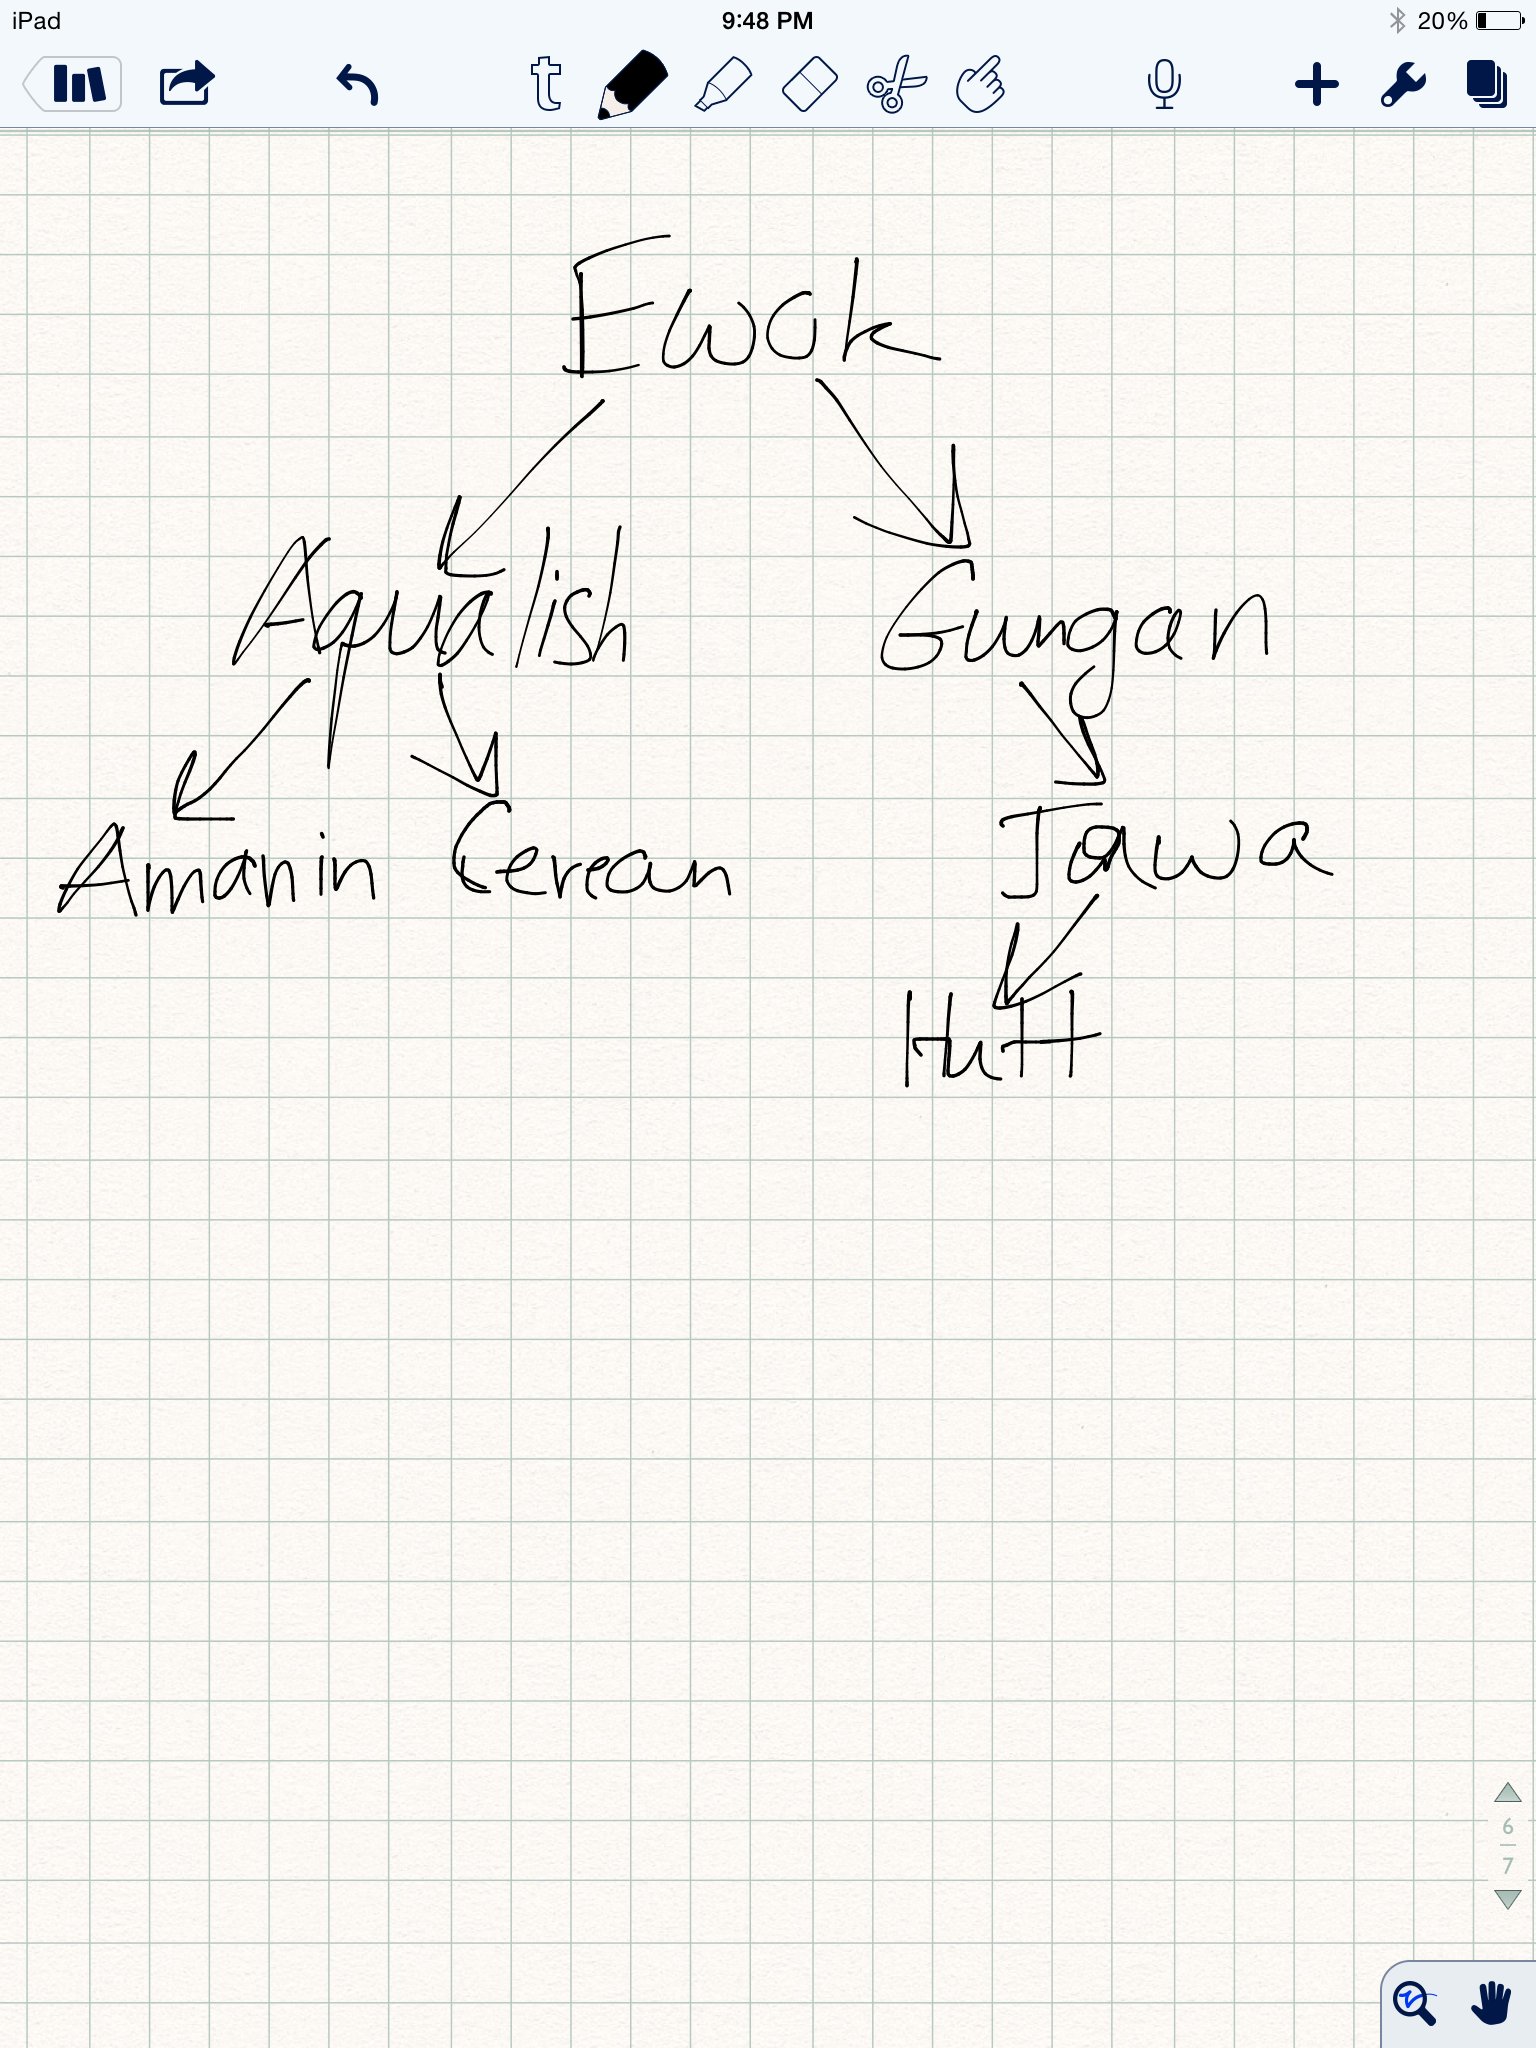 iPad 9:48 PM 20%
t
Ewok
Aqualish Gungan
Amanin Cerean Jawa
Hutt
6
7